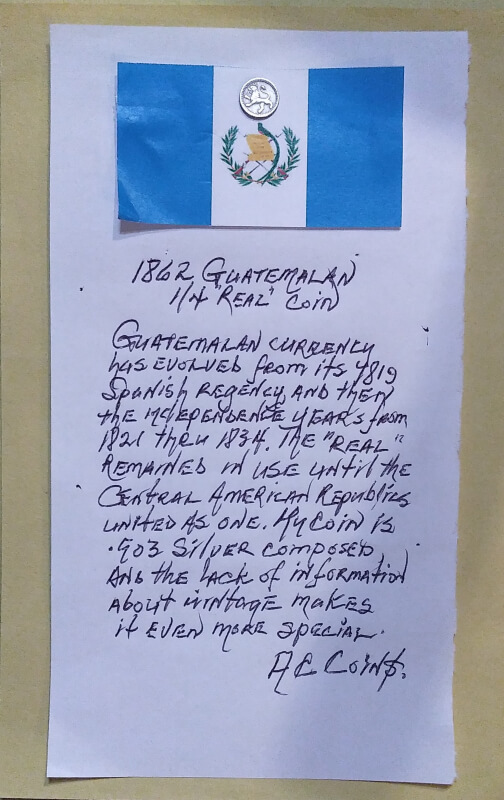 1862 GUATEMALAN
1/4 "REAL" COIN
GUATEMALAN CURRENCY
has EVOLVED from its 1819
Spanish REGENCY AND then
the INDEPENDENCE YEARS from
1821 thru 1834. THE "REAL"
REMAINED IN USE UNTIL the
CENTRAL AMERICAN Republics
UNITED AS ONE. My COIN is
.903 SILVER COMPOSED,
AND the LACK of information
About MINTAGE MAKES
it EVEN MORE SPECIAL.
A C COIN$.